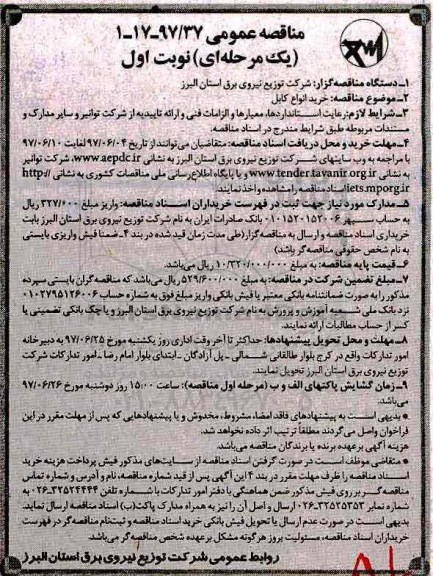 مناقصه عمومی ۹۷/۳۷-۱۷-۱
(یک مرحله‌ای) نوبت اول
۱ـ دستگاه مناقصه‌گزار: شرکت توزیع نیروی برق استان البرز
۲ـ موضوع مناقصه: خرید انواع کابل
۳ـ شرایط لازم: رعایت استانداردها، معیارها و الزامات فنی و ارائه تاییدیه از شرکت توانیر و سایر مدارک و
مستندات مربوطه طبق شرایط مندرج در اسناد مناقصه.
۴ـ مهلت خرید و محل دریافت اسناد مناقصه: متقاضیان می‌توانند از تاریخ ۹۷/۰۶/۰۴ لغایت ۹۷/۰۶/۱۰
با مراجعه به وب سایتهای شرکت توزیع نیروی برق استان البرز به نشانی www.aepdc.ir، شرکت توانیر
به نشانی www.tender.tavanir.org.ir و یا پایگاه اطلاع‌رسانی ملی مناقصات کشوری به نشانی http://
iets.mporg.ir اسناد مناقصه را مشاهده و اخذ نمایند.
۵ـ مدارک مورد نیاز جهت ثبت در فهرست خریداران اسناد مناقصه: واریز مبلغ ۳۲۷/۰۰۰ ریال
به حساب سپهر ۰۱۰۱۵۲۰۱۵۲۰۰۶ بانک صادرات ایران به نام شرکت توزیع نیروی برق استان البرز بابت
خریداری اسناد مناقصه و ارسال به مناقصه گزار (طی مدت زمان قید شده در بند ۴ـ ضمنا فیش واریزی بایستی
به نام شخص حقوقی مناقصه‌گر باشد)
۶ـ قیمت پایه مناقصه: به مبلغ ۱۰/۳۲۰/۰۰۰/۰۰۰ ریال می‌باشد.
۷ـ مبلغ تضمین شرکت در مناقصه: به مبلغ ۵۲۹/۶۰۰/۰۰۰ ریال می‌باشد که مناقصه گران بایستی سپرده
مذکور را به صورت ضمانتنامه بانکی معتبر یا فیش بانکی واریز مبلغ فوق به شماره حساب ۰۱۰۲۷۹۵۱۲۶۰۰۶
نزد بانک ملی شعبه آموزش و پرورش به نام شرکت توزیع نیروی برق استان البرز و یا چک بانکی تضمینی یا
کسر از حساب مطالبات ارائه نمایند.
۸ـ مهلت و محل تحویل پیشنهادها: حداکثر تا آخر وقت اداری روز یکشنبه مورخ ۹۷/۰۶/۲۵ به دبیرخانه
امور تدارکات واقع در کرج بلوار طالقانی شمالی ـ پل آزادگان ـ ابتدای بلوار امام رضا ـ امور تدارکات شرکت
توزیع نیروی برق استان البرز تحویل نمایند.
۹ـ زمان گشایش پاکتهای الف و ب (مرحله اول مناقصه): ساعت ۱۵:۰۰ روز دوشنبه مورخ ۹۷/۰۶/۲۶
می‌باشد.
● بدیهی است به پیشنهادهای فاقد امضا، مشروط، مخدوش و یا پیشنهادهایی که پس از مهلت مقرر در این
فراخوان واصل می‌گردند مطلقاً ترتیب اثر داده نخواهد شد.
هزینه آگهی بر عهده برنده یا برندگان مناقصه می‌باشد.
● متقاضی موظف است در صورت گرفتن اسناد مناقصه از سایت‌های مذکور فیش پرداخت هزینه خرید
اسناد مناقصه را ظرف مهلت مقرر در بند ۴ این آگهی پس از قید شماره مناقصه، نام و آدرس و شماره تماس
مناقصه گر بر روی فیش مذکور ضمن هماهنگی با دفتر امور تدارکات با شماره تلفن ۳۲۵۲۴۴۴۴-۰۲۶ به
شماره نمابر ۳۲۵۲۵۳۵۳-۰۲۶ ارسال و اصل آن را نیز به همراه مدارک پاکت (ب) اسناد مناقصه ارسال نماید.
بدیهی است در صورت عدم ارسال یا تحویل فیش بانکی خرید اسناد مناقصه و ثبت‌نام مناقصه گر در فهرست
خریداران اسناد مناقصه، مسئولیت بروز هرگونه مشکل بر عهده شخص مناقصه گر می‌باشد.
روابط عمومی شرکت توزیع نیروی برق استان البرز